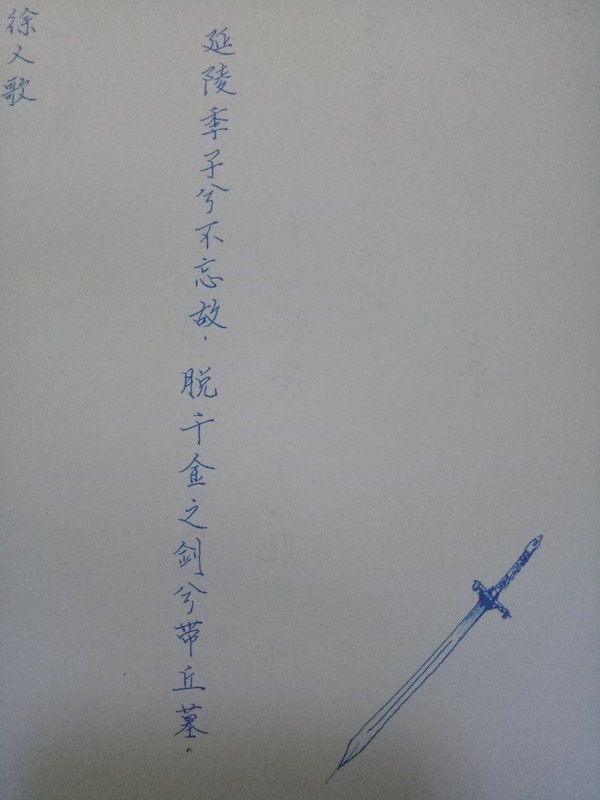 徐人歌
延陵季子兮不忘故，脱千金之剑兮带丘墓。